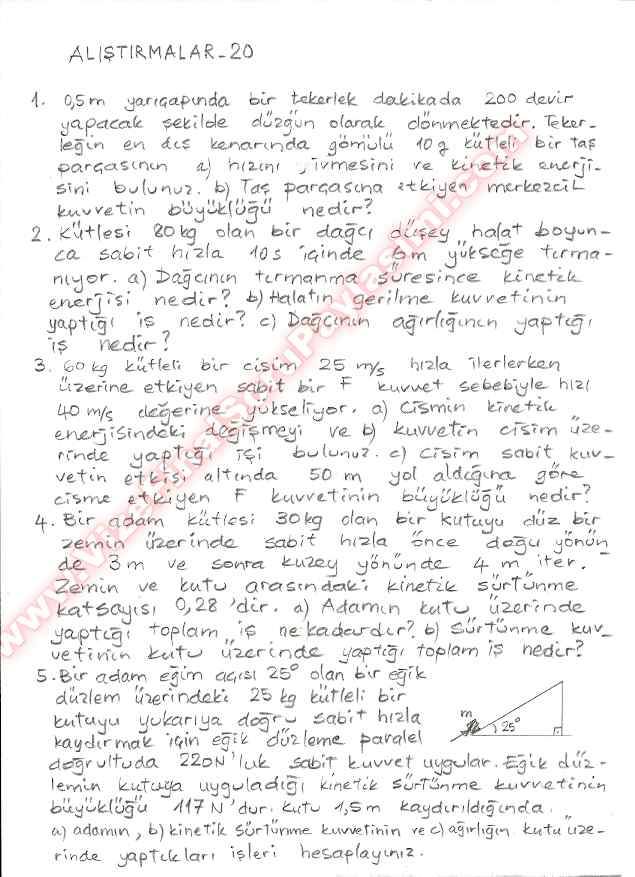 ALIŞTIRMALAR-20
1. 0,5m yarıçapında bir tekerlek dakikada 200 devir
yapacak şekilde düzgün olarak dönmektedir. Teker-
leğin en dış kenarında gömülü 10g kütleli bir taş
parçasının a) hızını, ivmesini ve kinetik enerji-
sini bulunuz. b) Taş parçasına etkiyen merkezcil
kuvvetin büyüklüğü nedir?
2. Kütlesi 80kg olan bir dağcı düşey halat boyun-
ca sabit hızla 10s içinde 6m yükseğe tırma-
nıyor. a) Dağcının tırmanma süresince kinetik
enerjisi nedir? b) Halatın gerilme kuvvetinin
yaptığı iş nedir? c) Dağcının ağırlığının yaptığı
iş nedir?
3. 60kg kütleli bir cisim 25 m/s hızla ilerlerken
üzerine etkiyen sabit bir F kuvvet sebebiyle hızı
40 m/s değerine yükseliyor. a) Cismin kinetik
enerjisindeki değişmeyi ve b) kuvvetin cisim üze-
rinde yaptığı işi bulunuz. c) Cisim sabit kuv-
vetin etkisi altında 50 m yol aldığına göre
cisme etkiyen F kuvvetinin büyüklüğü nedir?
4. Bir adam kütlesi 30kg olan bir kutuyu düz bir
zemin üzerinde sabit hızla önce doğu yönün
de 3m ve sonra kuzey yönünde 4 m iter.
Zemin ve kutu arasındaki kinetik sürtünme
katsayısı 0,28 'dir. a) Adamın kutu üzerinde
yaptığı toplam iş ne kadardır? b) Sürtünme kuv-
vetinin kutu üzerinde yaptığı toplam iş nedir?
5. Bir adam eğim açısı 25° olan bir eğik
düzlem üzerindeki 25 kg kütleli bir
kutuyu yukarıya doğru sabit hızla
kaydırmak için eğik düzleme paralel
m
25°
doğrultuda 220N'luk sabit kuvvet uygular. Eğik düz-
lemin kutuya uyguladığı kinetik sürtünme kuvvetinin
büyüklüğü 117N'dur. Kutu 1,5m kaydırıldığında.
a) adamın, b) kinetik sürtünme kuvvetinin ve c) ağırlığın kutu üze-
rinde yaptıkları işleri hesaplayınız.
www.VizeFinalSoruPaylasimi.com